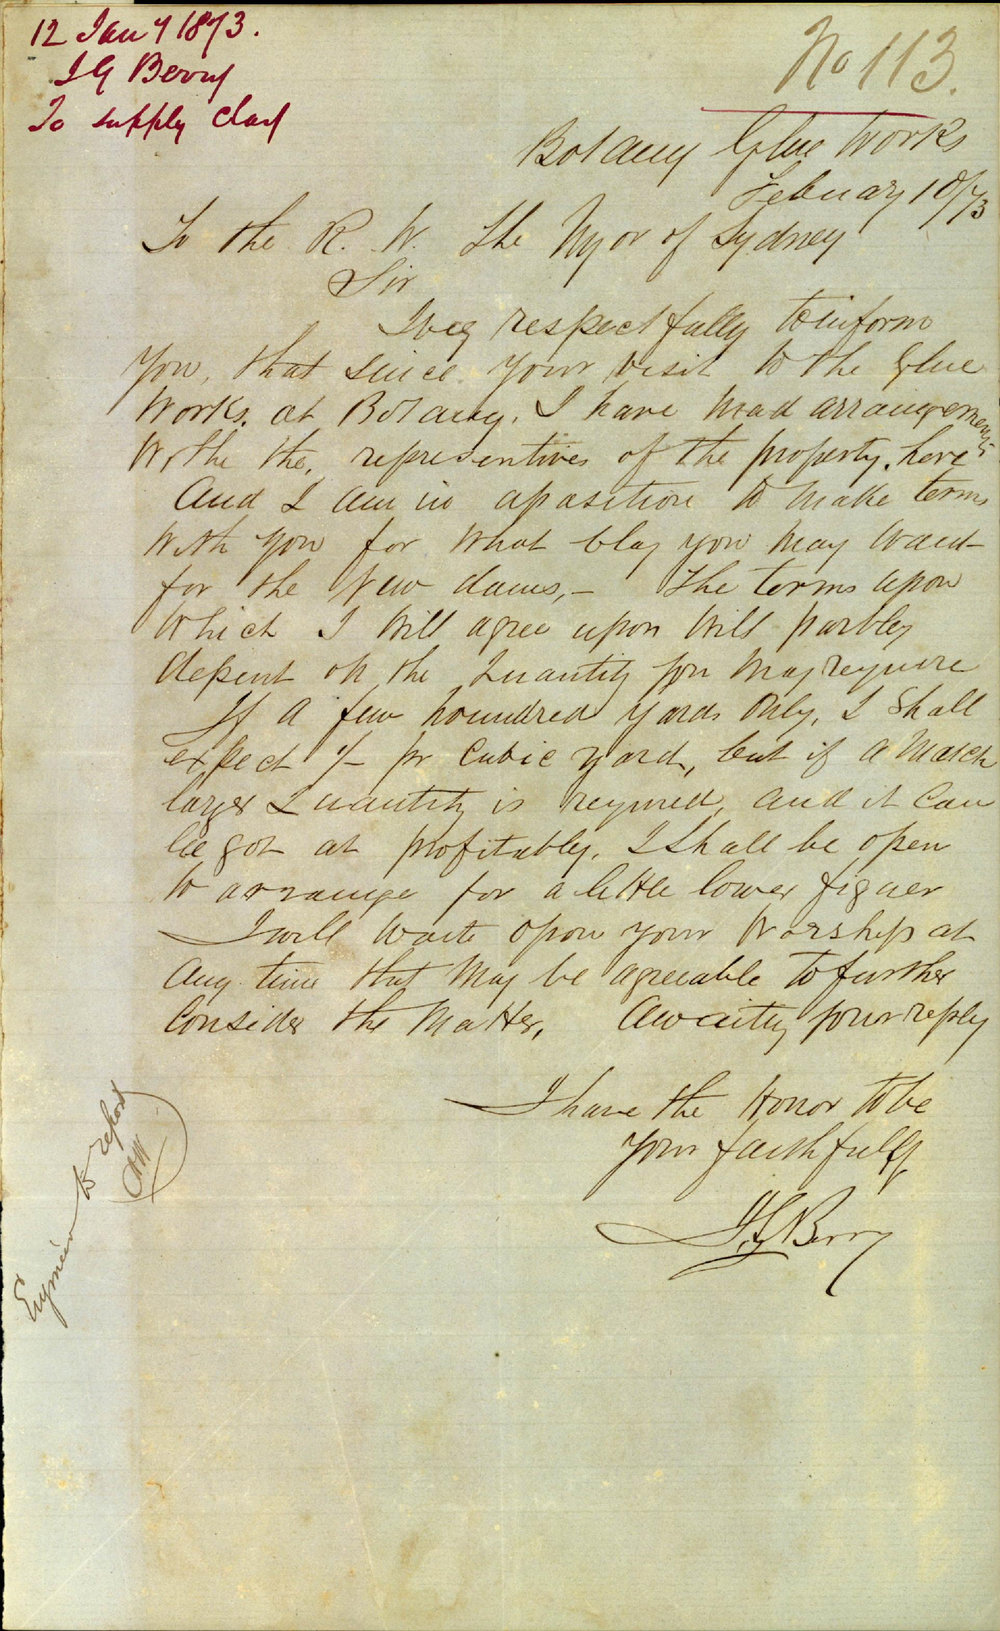 12 Jany 1873.
J G Berry
To supply clay
No 113.
Botany Glue Works
Febuary 10/73
To the R. W. The Myor of Sydney
Sir
I beg respectfully to inform
you, that since your visit to the Glue
Works, at Botany, I have mad arrangements
Withe the, representives of the property, here
And I am in aposition to make terms
With you for what Clay you may Want
for the New dams, - The terms upon
Which I Will agree upon Will partley
depent on the Quantity you may reguire
If a few houndred yards only, I Shall
expect 1/- pr Cubic yard, but if a much
larger Quantity is reguired, and it Can
be got at profitably, I Shall be open
to arrange for a little lower figuer
I will Waite opon your Worship at
Any time that May be agreeable to further
Consider the Matter, Awaiting your reply
I have the Honor to be
Your faithfully
J G Berry
Engineer to report